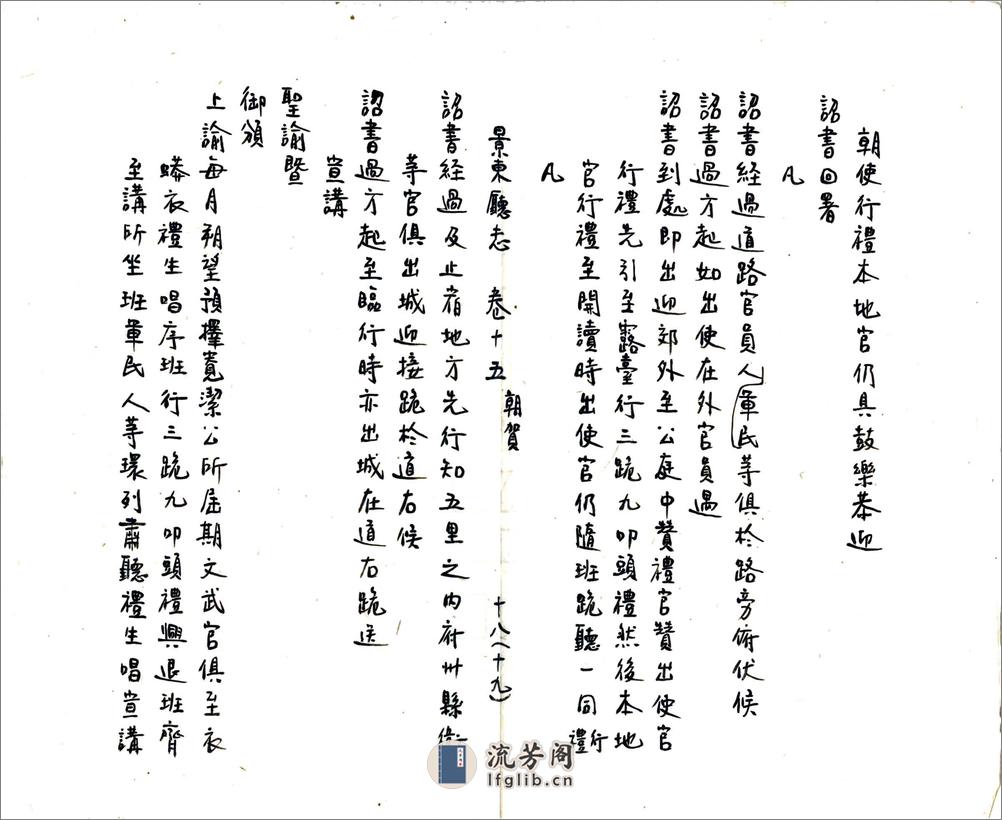 朝使行禮本地官仍具鼓樂恭迎
詔書回署
凡
詔書經過道路官員人軍民等俱於路旁俯伏候
詔書過方起如出使在外官員遇
詔書到處即出迎郊外至公庭中贊禮官贊出使官
行禮先引至露臺行三跪九叩頭禮然後本地
官行禮至開讀時出使官仍隨班跪聽一同行禮
凡
景東廳志 卷十五 朝賀 十八(十九)
詔書經過及止宿地方先行知五里之內府州縣衛
等官俱出城迎接跪於道右候
詔書過方起至臨行時亦出城在道右跪送
宣講
聖諭暨
御頒
上諭每月朔望預擇寬潔公所屆期文武官俱至衣
蟒衣禮生唱序班行三跪九叩頭禮興退班齊
至講所坐班軍民人等環列肅聽禮生唱宣講
流芳阁
lfglib.cn